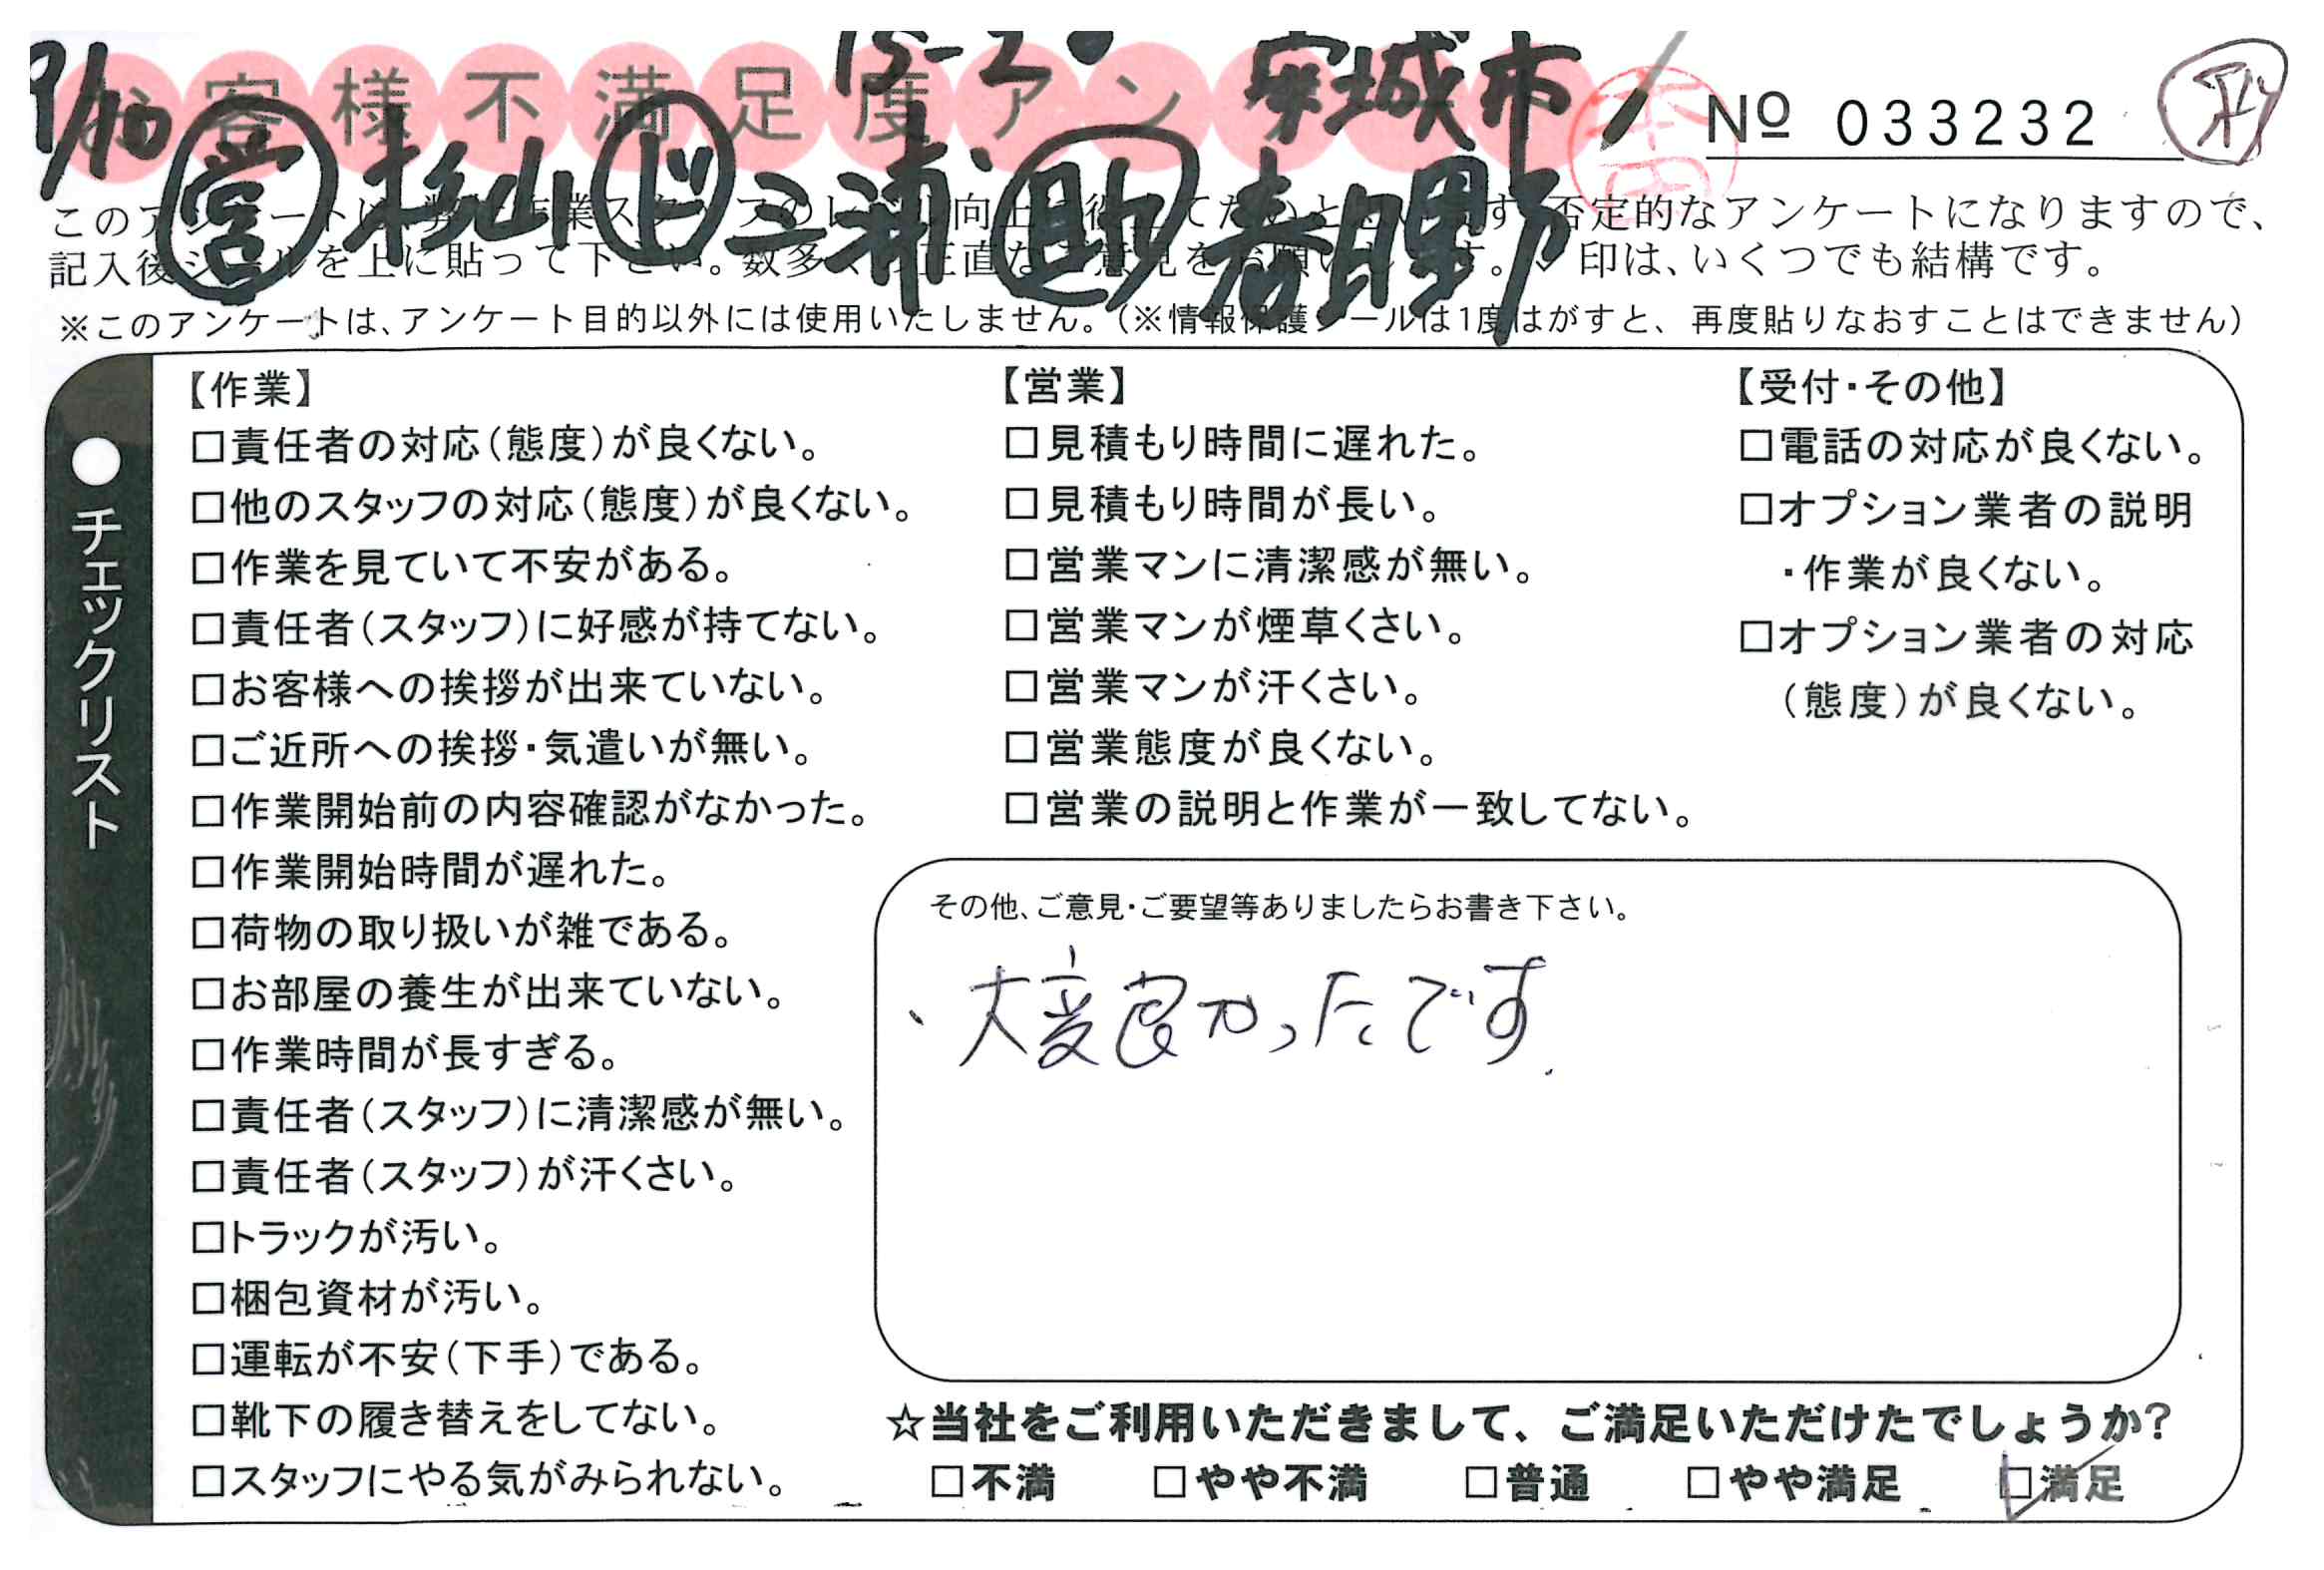 9/10 15-20 安城市
お客様不満足度アン
№ 033232
営 杉山 ド 三浦 助 春日野
このアンケートは、 作業スタッフのレベル向上に役立てたいと思います。否定的なアンケートになりますので、
記入後シールを上に貼って下さい。数多くの正直なご意見をお願いします。✓印は、いくつでも結構です。
※このアンケートは、アンケート目的以外には使用いたしません。(※情報保護シールは1度はがすと、再度貼りなおすことはできません)
●チェックリスト
【作業】
□責任者の対応(態度)が良くない。
□他のスタッフの対応(態度)が良くない。
□作業を見ていて不安がある。
□責任者(スタッフ)に好感が持てない。
□お客様への挨拶が出来ていない。
□ご近所への挨拶・気遣いが無い。
□作業開始前の内容確認がなかった。
□作業開始時間が遅れた。
□荷物の取り扱いが雑である。
□お部屋の養生が出来ていない。
□作業時間が長すぎる。
□責任者(スタッフ)に清潔感が無い。
□責任者(スタッフ)が汗くさい。
□トラックが汚い。
□梱包資材が汚い。
□運転が不安(下手)である。
□靴下の履き替えをしてない。
□スタッフにやる気がみられない。
【営業】
□見積もり時間に遅れた。
□見積もり時間が長い。
□営業マンに清潔感が無い。
□営業マンが煙草くさい。
□営業マンが汗くさい。
□営業態度が良くない。
□営業の説明と作業が一致してない。
【受付・その他】
□電話の対応が良くない。
□オプション業者の説明
・作業が良くない。
□オプション業者の対応
(態度)が良くない。
その他、ご意見・ご要望等ありましたらお書き下さい。
、大変良かったです
☆当社をご利用いただきまして、ご満足いただけたでしょうか?
□不満 □やや不満 □普通 □やや満足 ☑満足